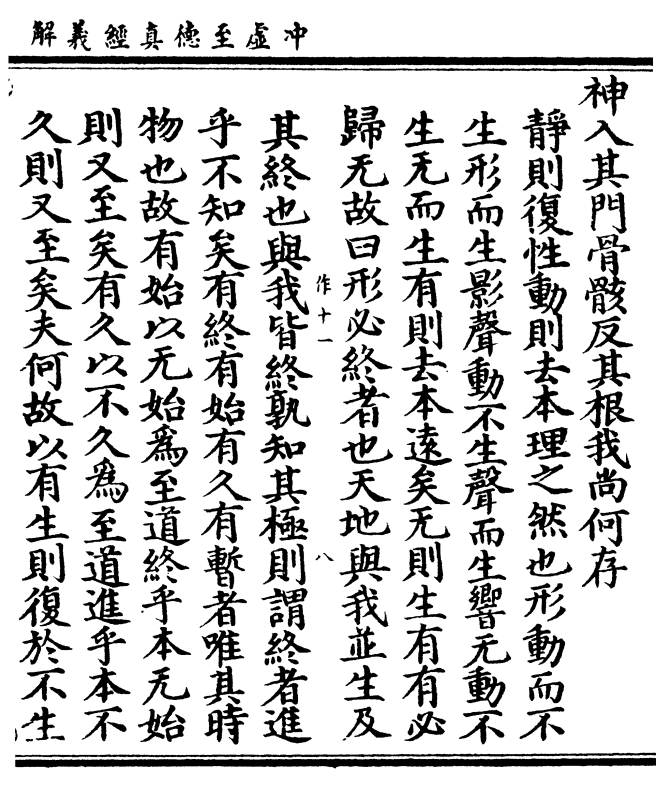 冲虛至德真經義解
神入其門骨骸反其根我尚何存
靜則復性動則去本理之然也形動而不
生形而生影聲動不生聲而生響无動不
生无而生有則去本遠矣无則生有有必
歸无故曰形必終者也天地與我並生及
作十一
八
其終也與我皆終孰知其極則謂終者進
乎不知矣有終有始有久有暫者唯其時
物也故有始以无始為至道終乎本无始
則又至矣有久以不久為至道進乎本不
久則又至矣夫何故以有生則復於不生